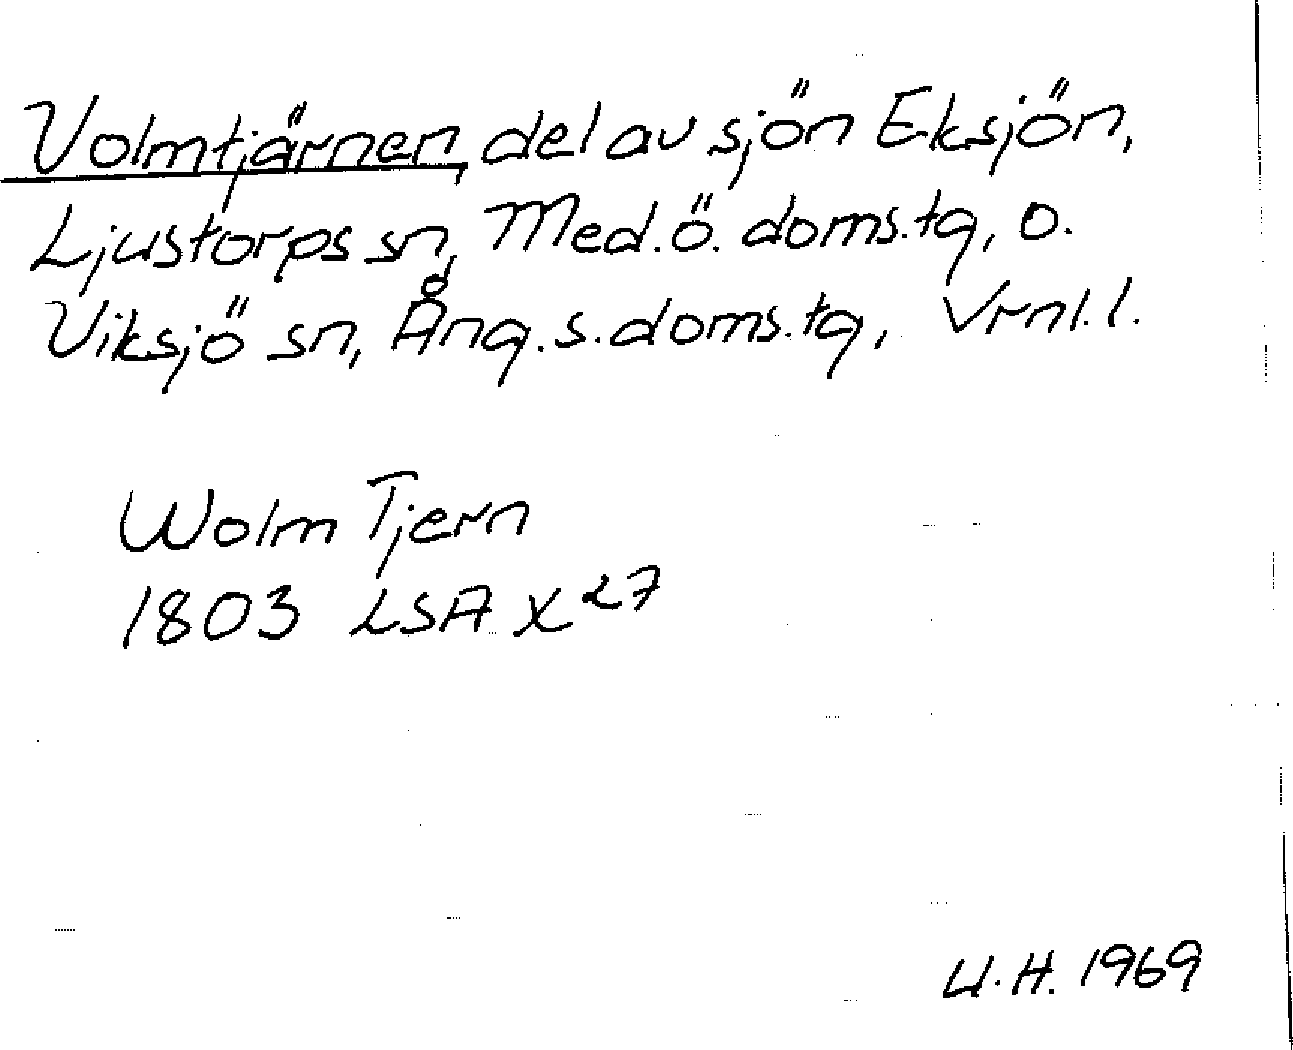 Volmtjärnen, del av sjön Eksjön,
Ljustorps sn, Med.ö. doms.tg, o.
Viksjö sn, Ång.s.doms.tg, Vrnl.l.
Wolm Tjern
1803 LSA X 27
U.H. 1969